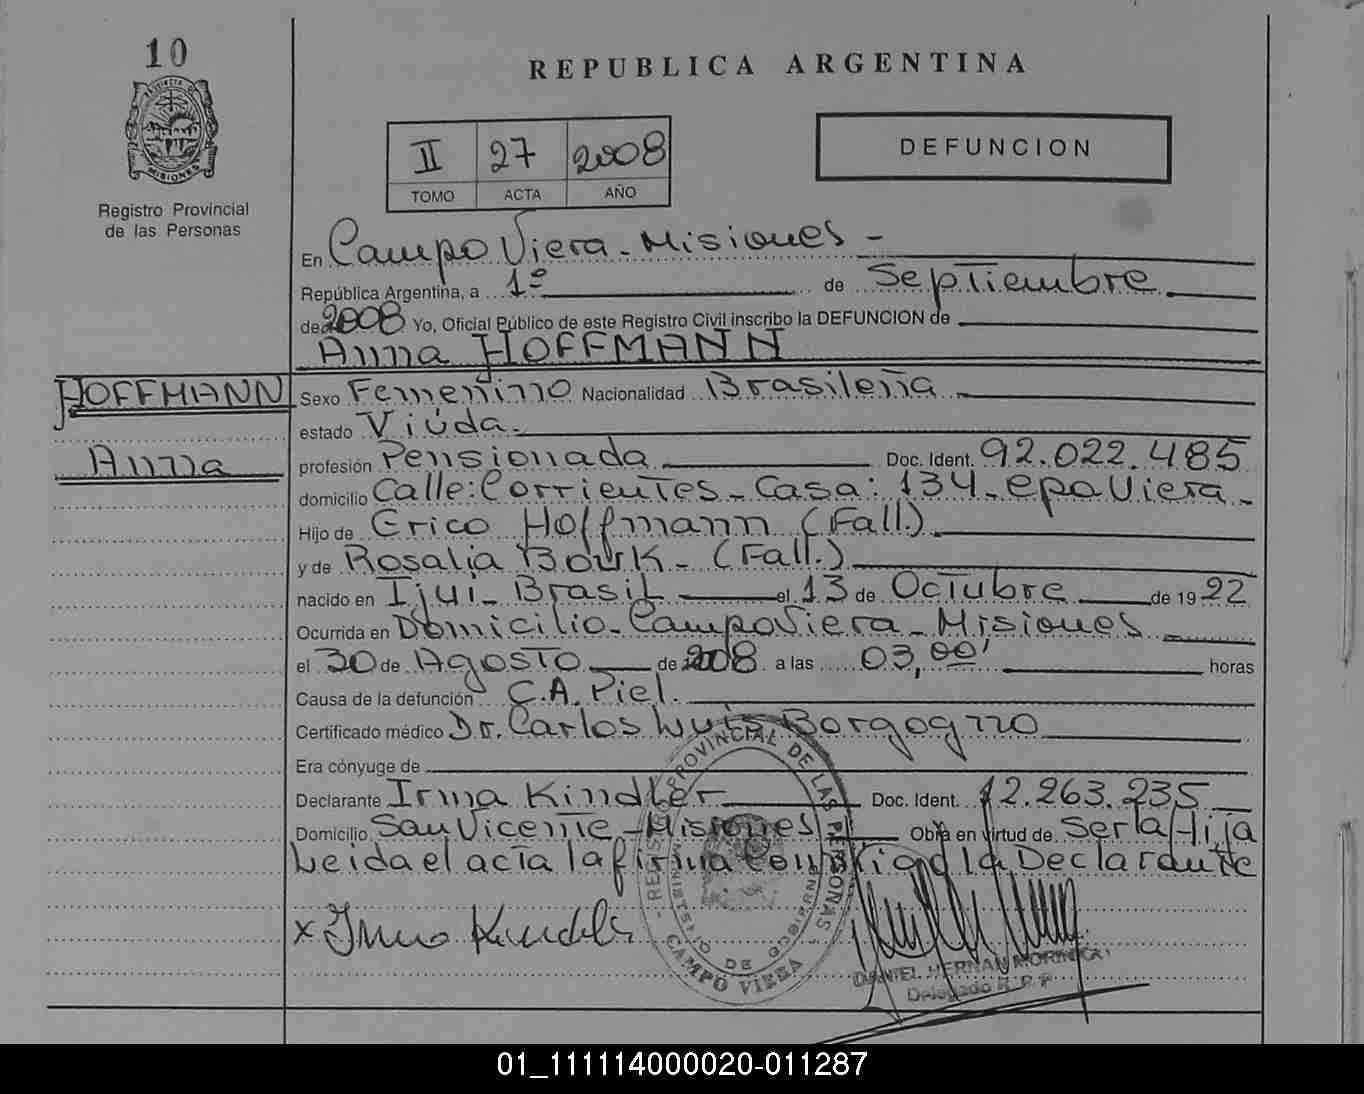 10
REPUBLICA ARGENTINA
PROVINCIA DE MISIONES
II 27 2008
TOMO ACTA AÑO
DEFUNCION
Registro Provincial
de las Personas
En Campo Viera - Misiones -
República Argentina, a 1º de Septiembre
de 2008 Yo, Oficial Público de este Registro Civil inscribo la DEFUNCION de
Anna HOFFMANN
HOFFMANN
Anna
Sexo Femenino Nacionalidad Brasileña
estado Viúda.
profesión Pensionada Doc. Ident. 92.022.485
domicilio Calle: Corrientes - Casa: 134 - Cpo Viera -
Hijo de Erico Hoffmann (Fall.)
y de Rosalia Bourk - (Fall.)
nacido en Ijui - Brasil el 13 de Octubre de 1922
Ocurrida en Domicilio - Campo Viera - Misiones
el 30 de Agosto de 2008 a las 03,00' horas
Causa de la defunción C.A. Piel.
Certificado médico Dr. Carlos Luis Borgogno
Era cónyuge de
Declarante Irma Kindler Doc. Ident. 12.263.235
Domicilio San Vicente - Misiones Obra en virtud de Ser la Hija
Leida el acta la firma conmigo la Declarante
x Irma Kindler
REGISTRO PROVINCIAL DE LAS PERSONAS
MINISTERIO DE GOBIERNO
CAMPO VIERA
DANIEL HERNAN
Delegado R. P. P.
01_111114000020-011287